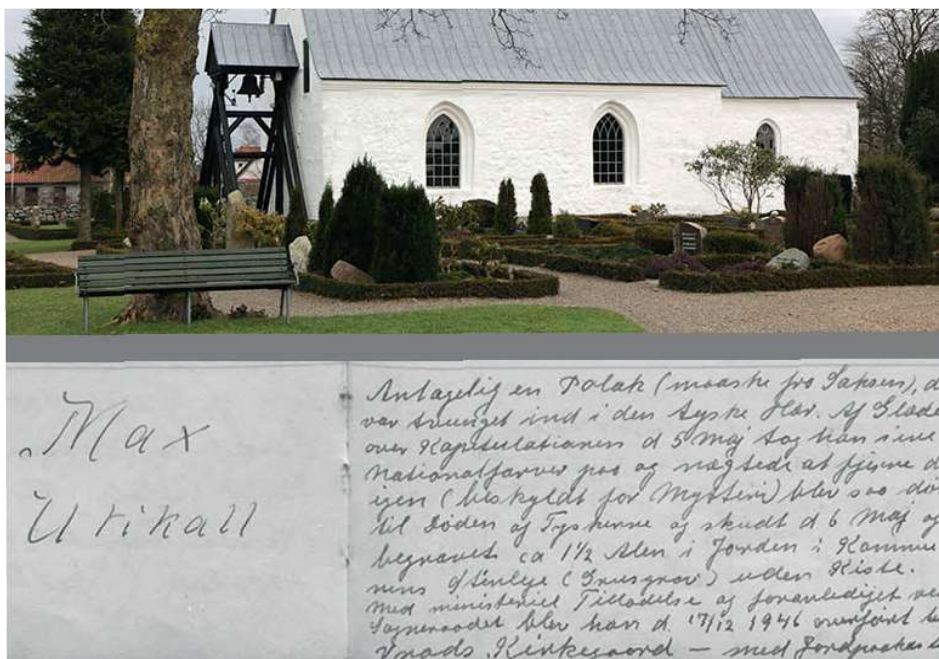 Max
Urikall
Antagelig en Polak (maaske fra Saksen), d
var tvunget ind i den tyske Hær. Af Glæde
over Kapitulationen d 5 Maj tog han sine
Nationalfarver paa og nægtede at fjerne d
igen (beskyldt for Mytteri) blev saa dø
til Døden af Tyskerne og skudt d 6 Maj og
begravet ca 1½ Alen i Jorden i Kommu
nens Stenleje (Grusgrav) uden Kiste.
Med ministeriel Tilladelse og foranlediget ve
Sogneraadet blev han d. 17/12 1946 overført ti
Vrads Kirkegaard – med Jordpaakas